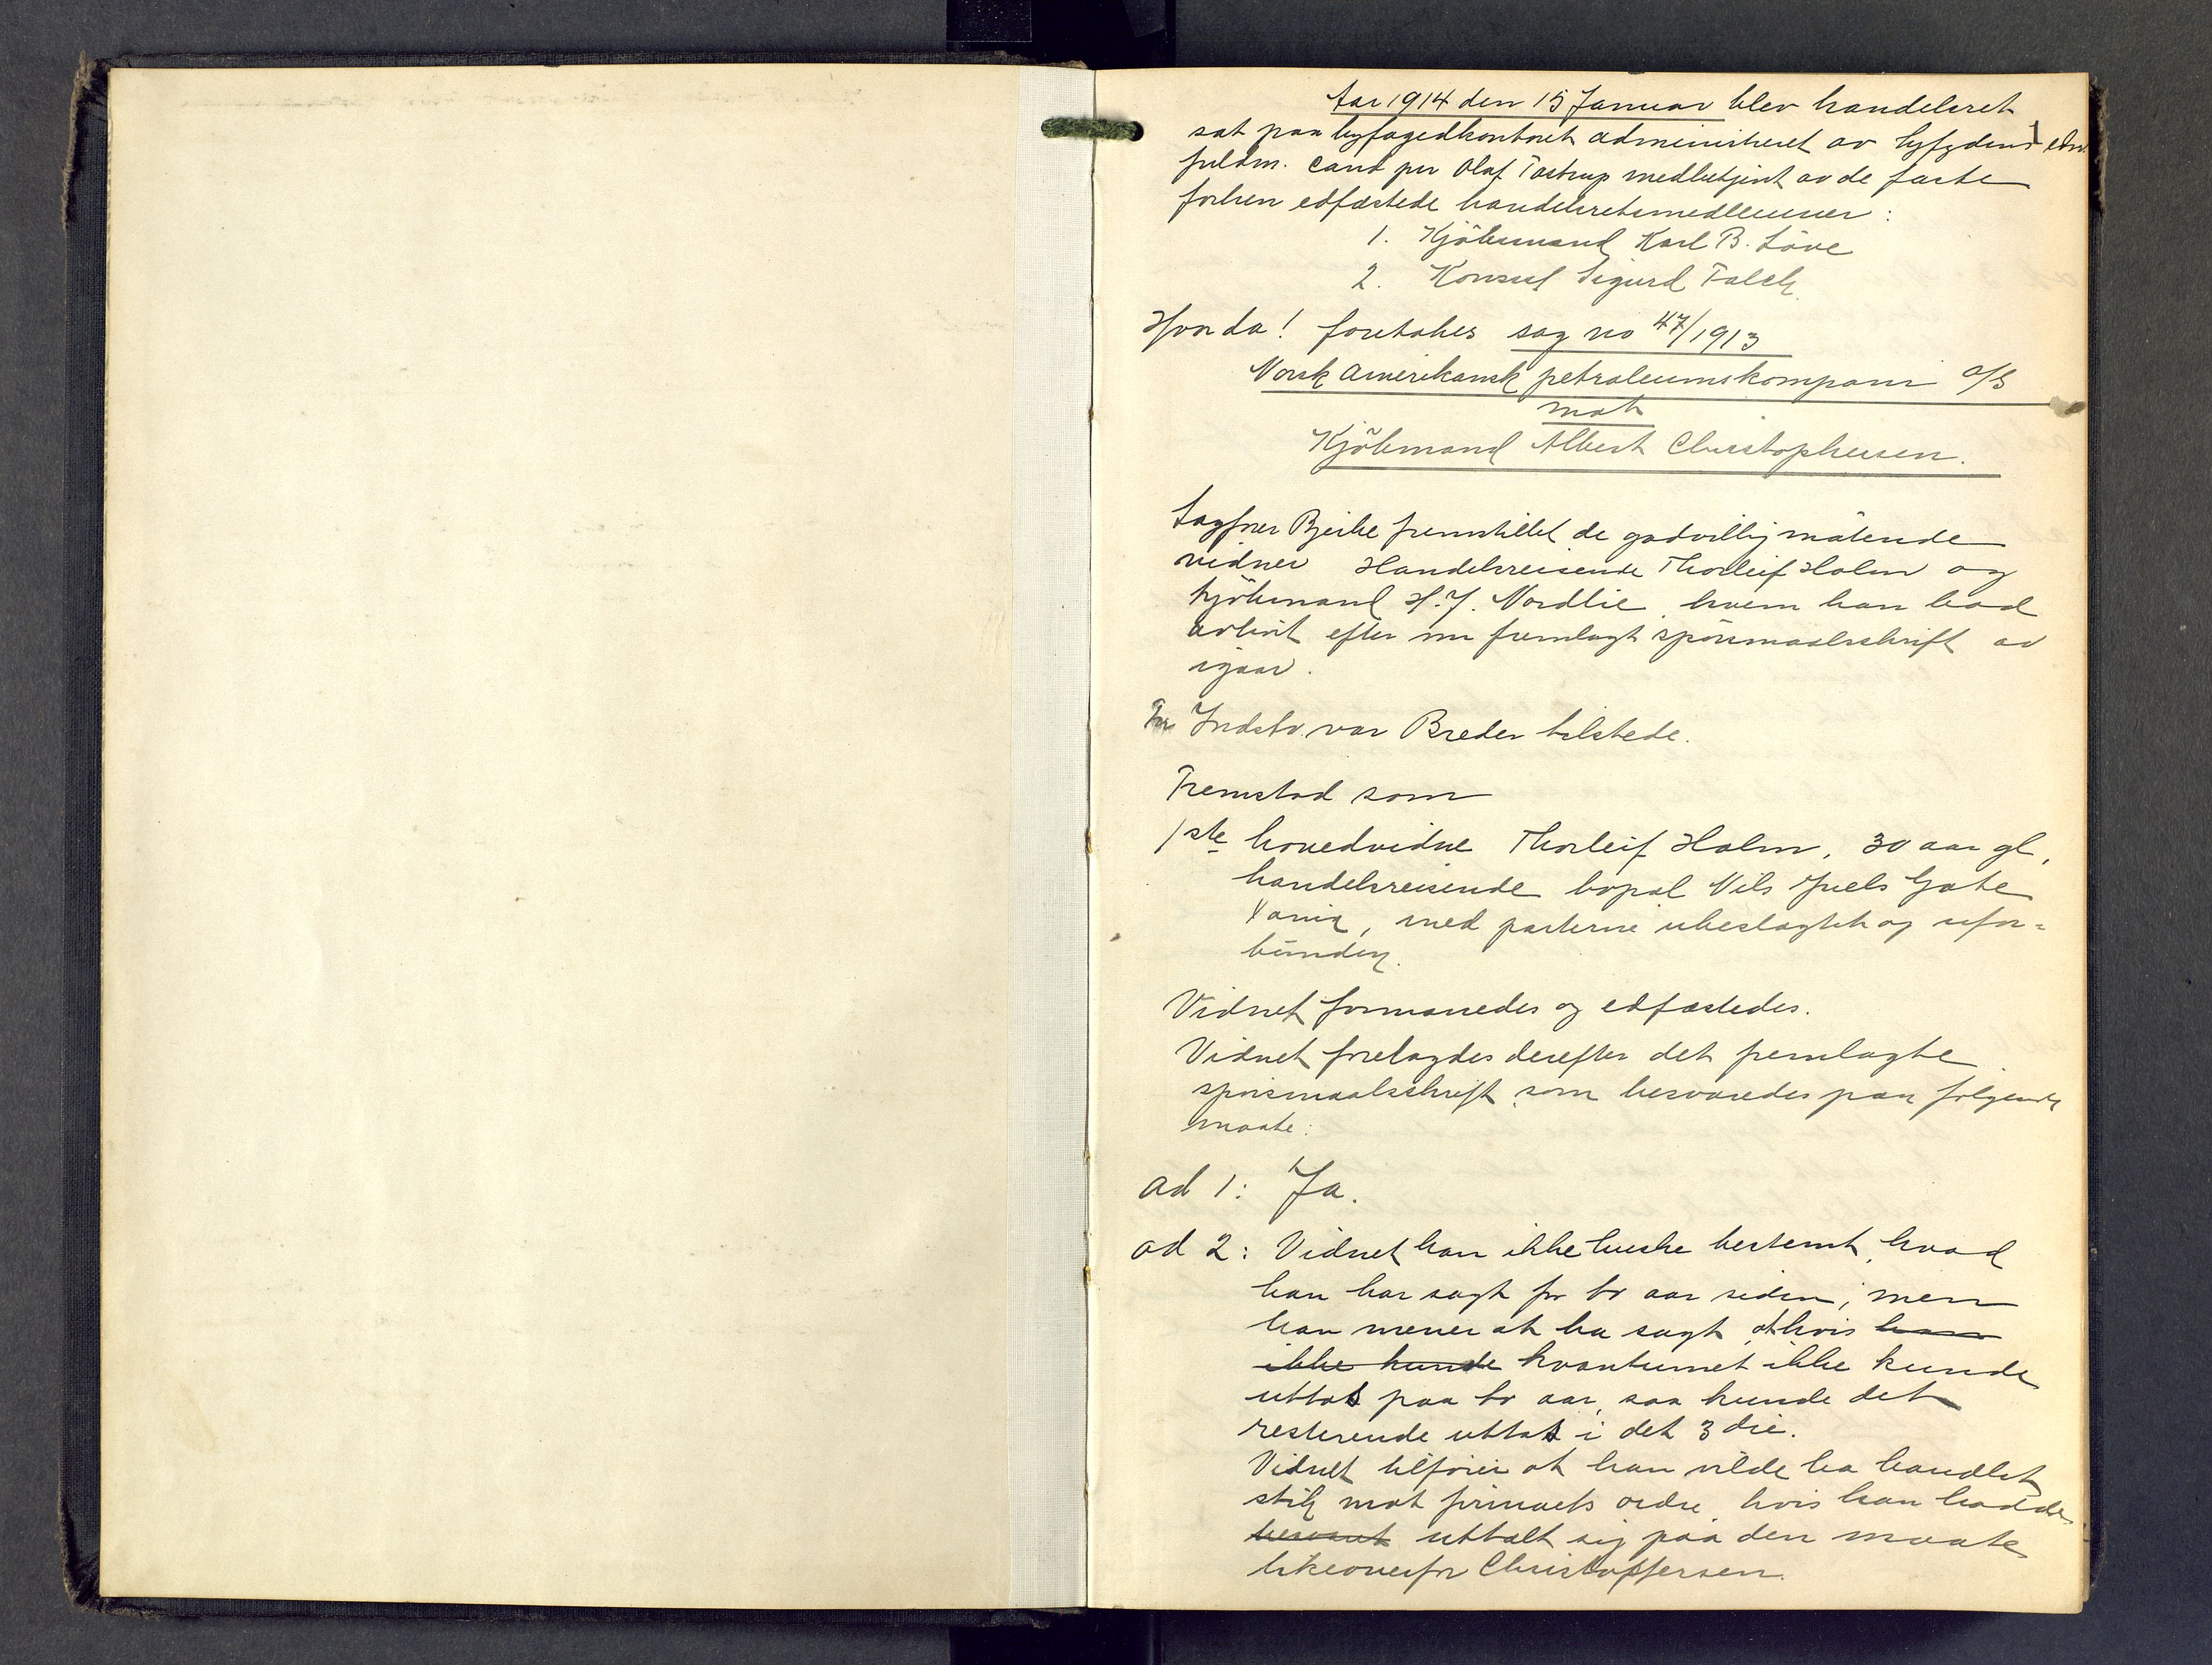 Aar 1914 den 15 Januar blev handelsret
sat paa byfogedkontoret administreret av byfogdens edsv.
fuldm. cand jur Olaf Tostrup medbetjent av de faste
forhen edfæstede handelsretsmedlemmer:
1. Kjöbmand Karl B. Löve
2. Konsul Sigurd Falck
Hvorda! foretokes sag no 47/1913
Norsk Amerikansk petroleumskompani A/S
mot
Kjöbmand Albert Christophersen.
Sagfører Bjerke fremstillet de godvillig mötende
vidner Handelsreisende Thorleif Holm og
kjöbmand H. J. Nordlie, hvem han bad
avhørt efter nu fremlagt spörsmaalsskrift av
igaar.
For Indstv. var Breder tilstede.
Fremstod som
1ste hovedvidne Thorleif Holm, 30 aar gl,
handelsreisende bopæl Nils Juels Gate
Xania, med parterne ubeslægtet og ufor-
bunden.
Vidnet formanedes og edfæstedes.
Vidnet forelagdes derefter det fremlagte
spørsmaalsskrift som besvaredes paa følgende
maate:
ad 1: Ja.
ad 2: Vidnet kan ikke huske bestemt, hvad
han har sagt for to aar siden; men
han mener at ha sagt at hvis han
ikke kunde kvantumet ikke kunde
uttas paa to aar, saa kunde det
resterende uttas i det 3die.
Vidnet tilføier at han vilde ha handlet
stik mot firmaets ordre, hvis han hadde
uttalt sig paa den maate
likeoverfor Christoffersen.